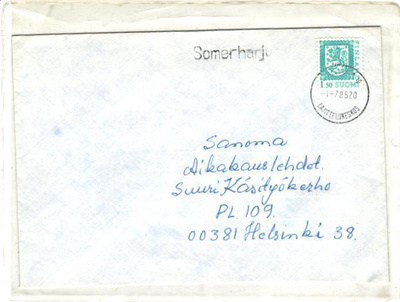 Somerharju
1.50 SUOMI
-1-7.8520
Sanoma
Aikakauslehdot.
Suuri Käsityökerho
PL 109.
00381 Helsinki 38.